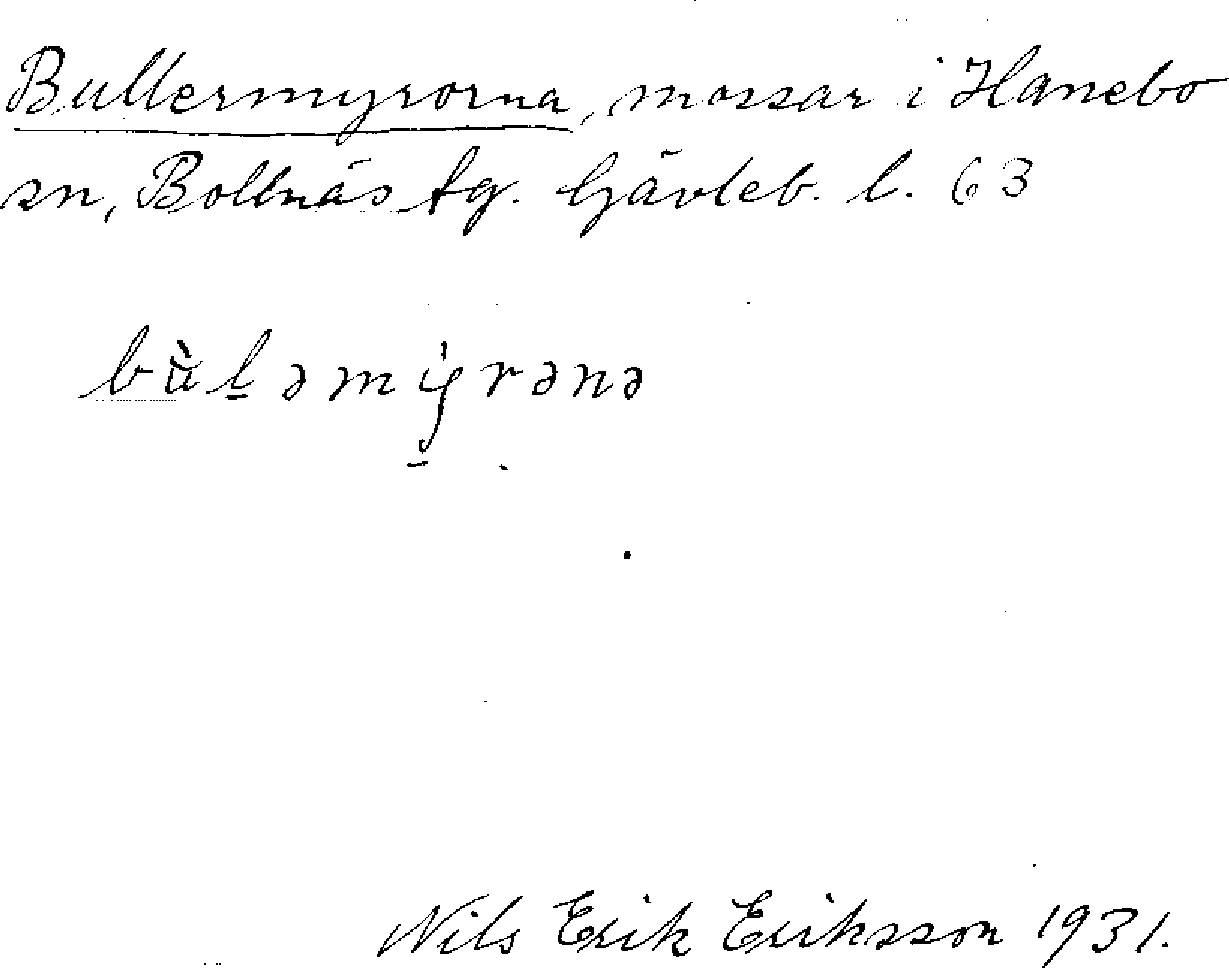 Bullermyrorna, mossar i Hanebo
sn, Bollnäs tg. Gävleb. l. 63
bù̀l̠əmẏ̠rənə
Nils Erik Eriksson 1931.